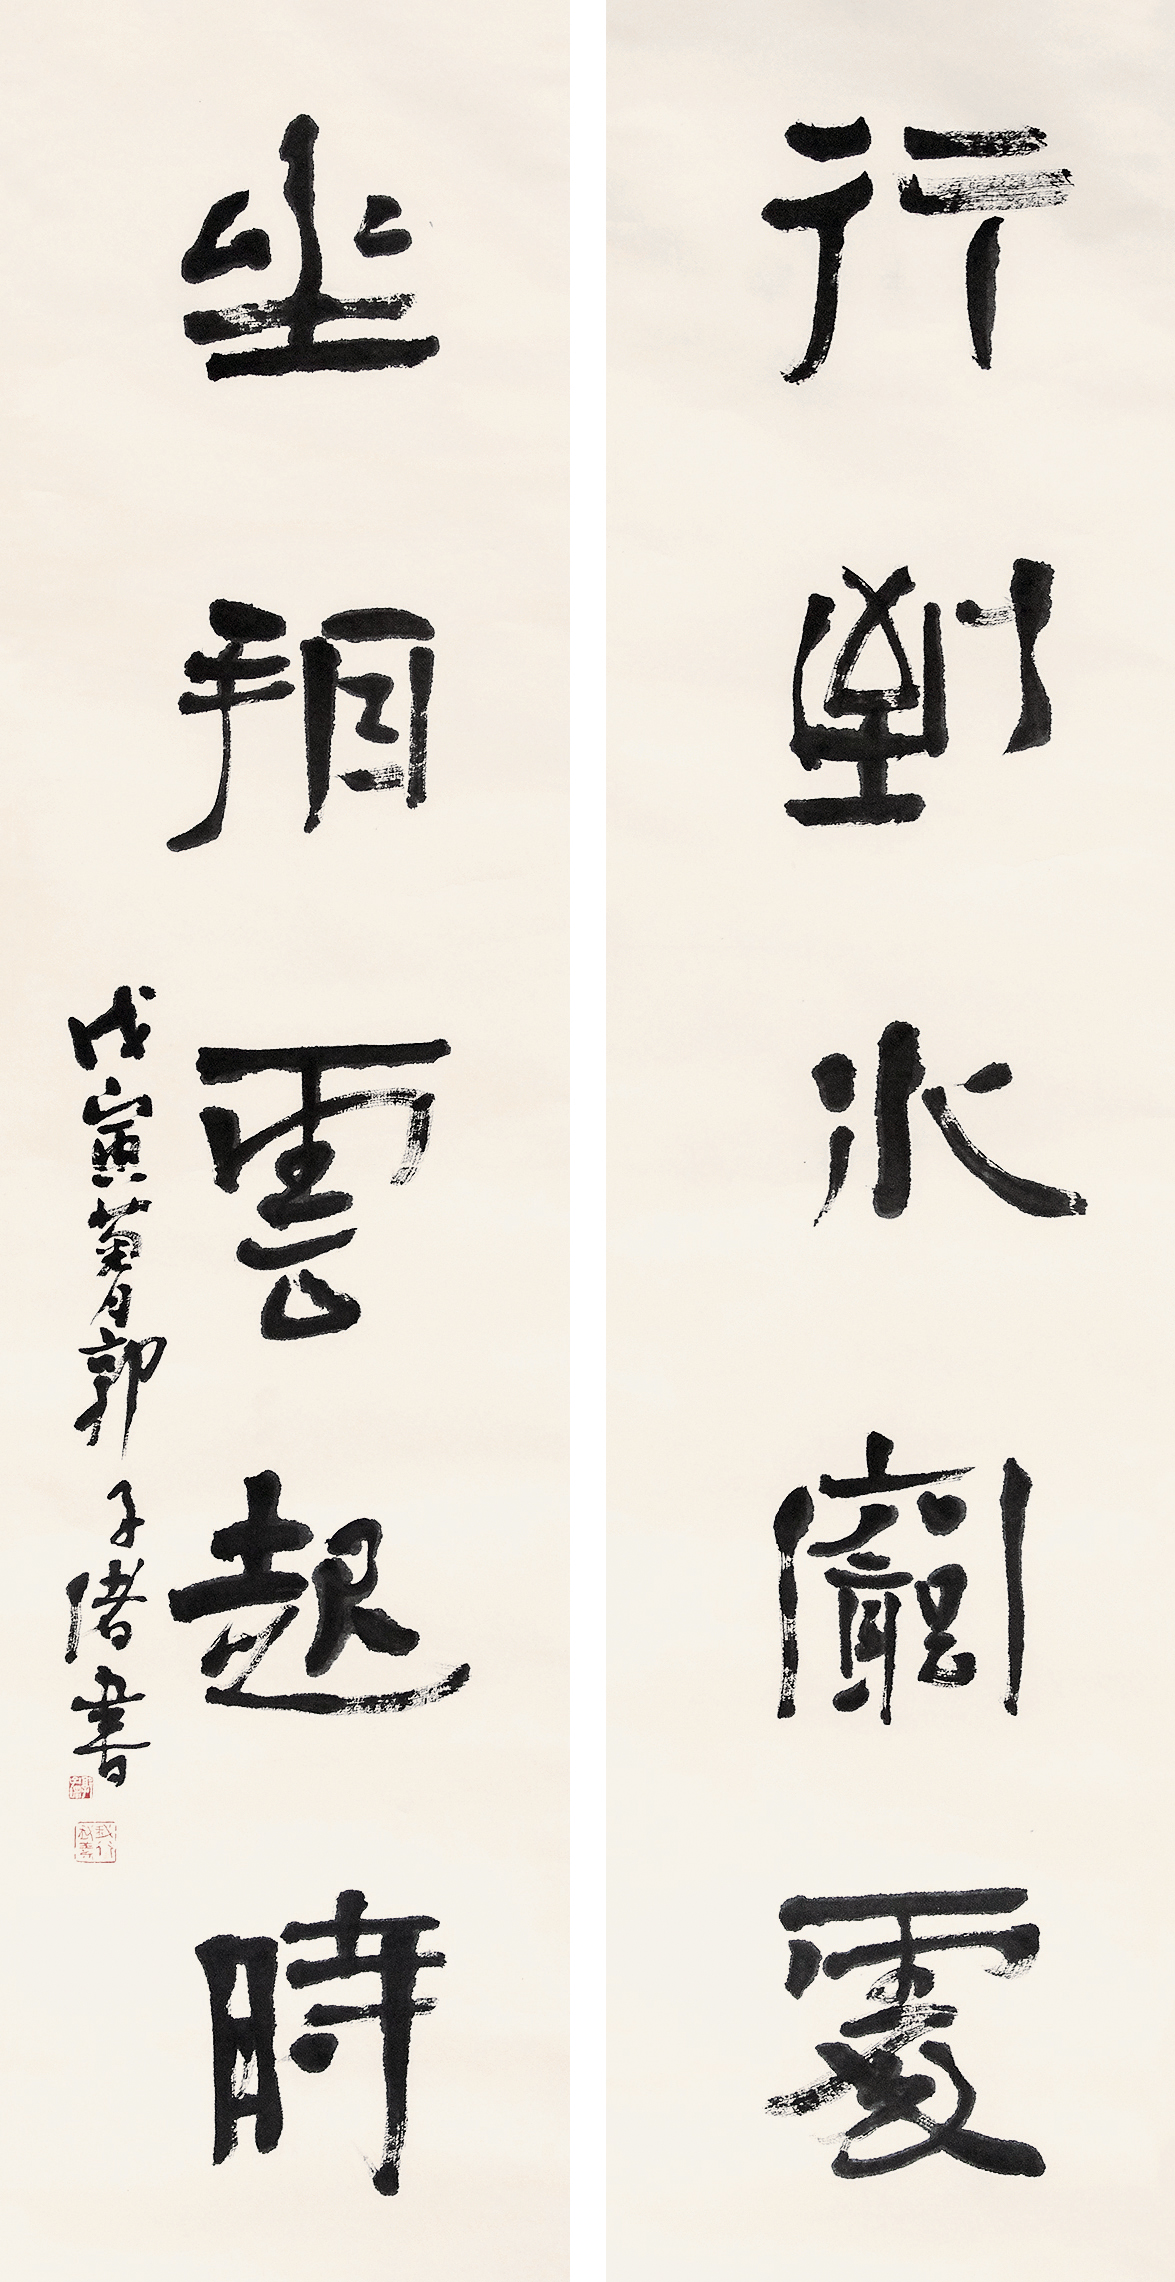 行到水窮處
坐看雲起時
戊寅菊月郭子緒書